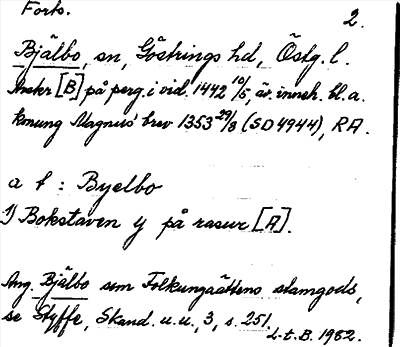 Forts. 2.
Bjälbo, sn, Göstrings hd, Östg. l.
Avskr [B] på perg. i vid. 1442 10/5, äv. inneh. bl. a.
konung Magnus' brev 1353 29/8 (SD 4944), RA.
a t : Byelbo
1) Bokstaven y på rasur [A].
Ang. Bjälbo som Folkungaättens stamgods,
se Styffe, Skand. u. u., 3, s. 251.
L.t.B. 1982.